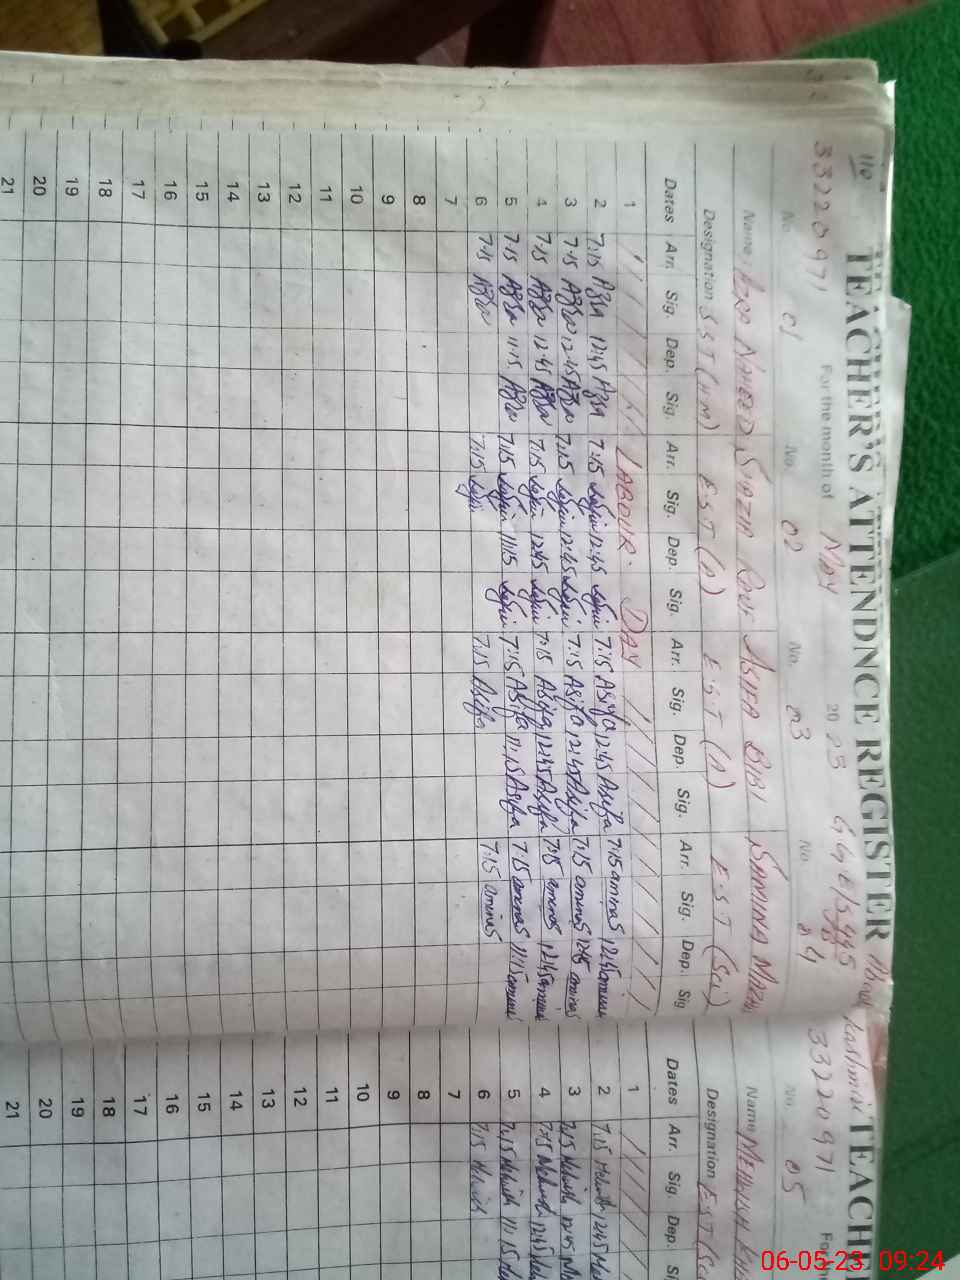 110
TEACHER'S ATTENDNCE REGISTER
33220971 For the month of May 2023 GGE/S 445
No. 01 No. 02 No. 03 No. 04
Name: Azra Naheed Shazia Rauf Asifa Bibi Samina
Designation SST (HM) EST (A) EST (A) EST (Sci)
Dates Arr. Sig. Dep. Sig. Arr. Sig. Dep. Sig. Arr. Sig. Dep. Sig. Arr. Sig. Dep. Sig
1 LABOUR DAY
2 7:15 Azra 12:45 Azra 7:15 12:45 7:15 Asifa 12:45 Asifa 7:15 aminas 12:45
3 7:15 Azra 12:45 Azra 7:15 12:45 7:15 Asifa 12:45 Asifa 7:15 aminas 12:45 aminas
4 7:15 Azra 12:45 Azra 7:15 12:45 7:15 Asifa 12:45 Asifa 7:15 aminas 12:45
5 7:15 Azra 11:15 Azra 7:15 11:15 7:15 Asifa 11:15 Asifa 7:15 aminas 11:15
6 7:15 Azra 7:15 7:15 Asifa 7:15 aminas
7
8
9
10
11
12
13
14
15
16
17
18
19
20
21
TEACHE
33220971 Fo
No. 05
Name Mehwish
Designation EST (Sc
Dates Arr. Sig. Dep. Si
1
2 7:15 12:45
3 7:15 12:45
4 7:15 12:45
5 7:15 11:15
6 7:15
7
8
9
10
11
12
13
14
15
16
17
18
19
20
21
06-05-23 09:24